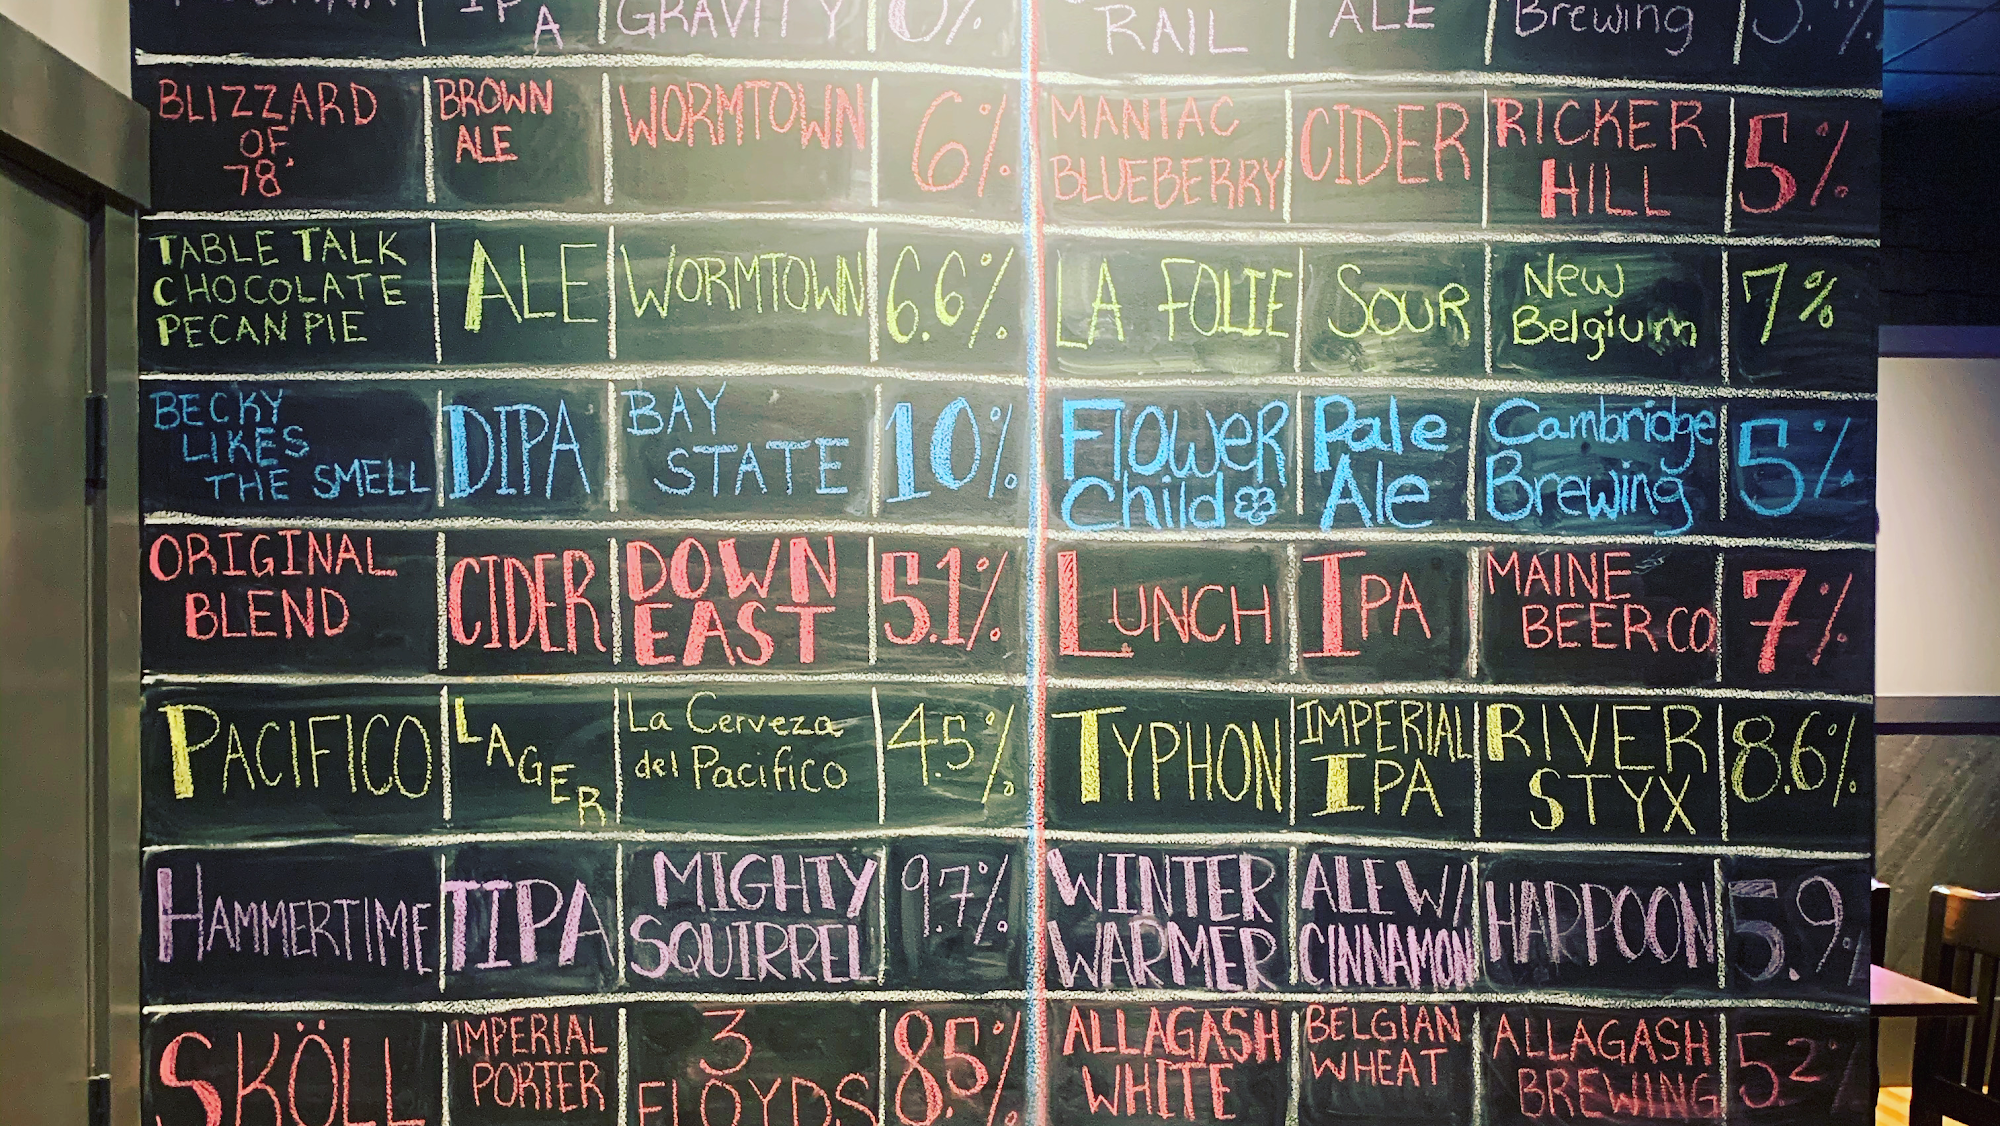 IPA GRAVITY
RAIL ALE Brewing
BLIZZARD OF 78' BROWN ALE WORMTOWN 6%
MANIAC BLUEBERRY CIDER RICKER HILL 5%
TABLE TALK CHOCOLATE PECAN PIE ALE WORMTOWN 6.6%
LA FOLIE SOUR New Belgium 7%
BECKY LIKES THE SMELL DIPA BAY STATE 10%
FlOWeR Child Pale Ale Cambridge Brewing 5%
ORIGINAL BLEND CIDER DOWN EAST 5.1%
LUNCH IPA MAINE BEER CO 7%
PACIFICO LAGER La Cerveza del Pacifico 4.5%
TYPHON IMPERIAL IPA RIVER STYX 8.6%
HAMMERTIME TIPA MIGHTY SQUIRREL 9.7%
WINTER WARMER ALE W/ CINNAMON HARPOON 5.9%
SKÖLL IMPERIAL PORTER 3 FLOYDS 8.5%
ALLAGASH WHITE BELGIAN WHEAT ALLAGASH BREWING 5.2%